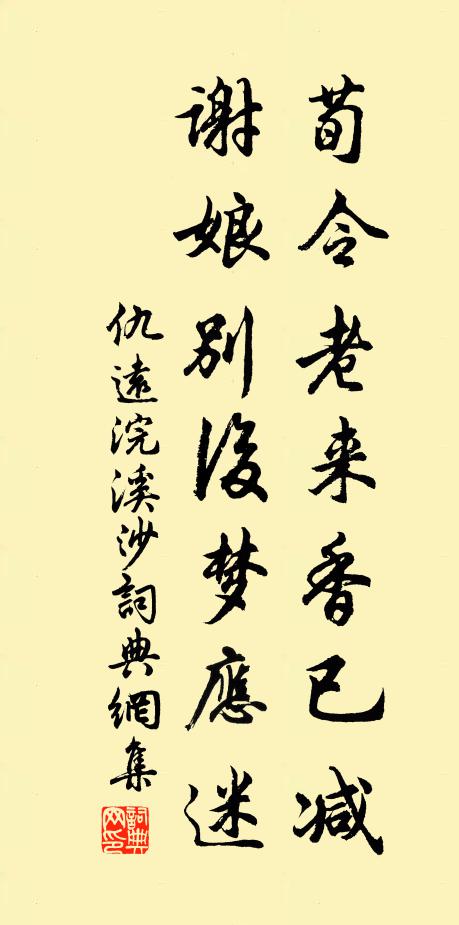 荀令老来香已减
谢娘别後梦應迷
仇遠浣溪沙詞典網集
詞典网印